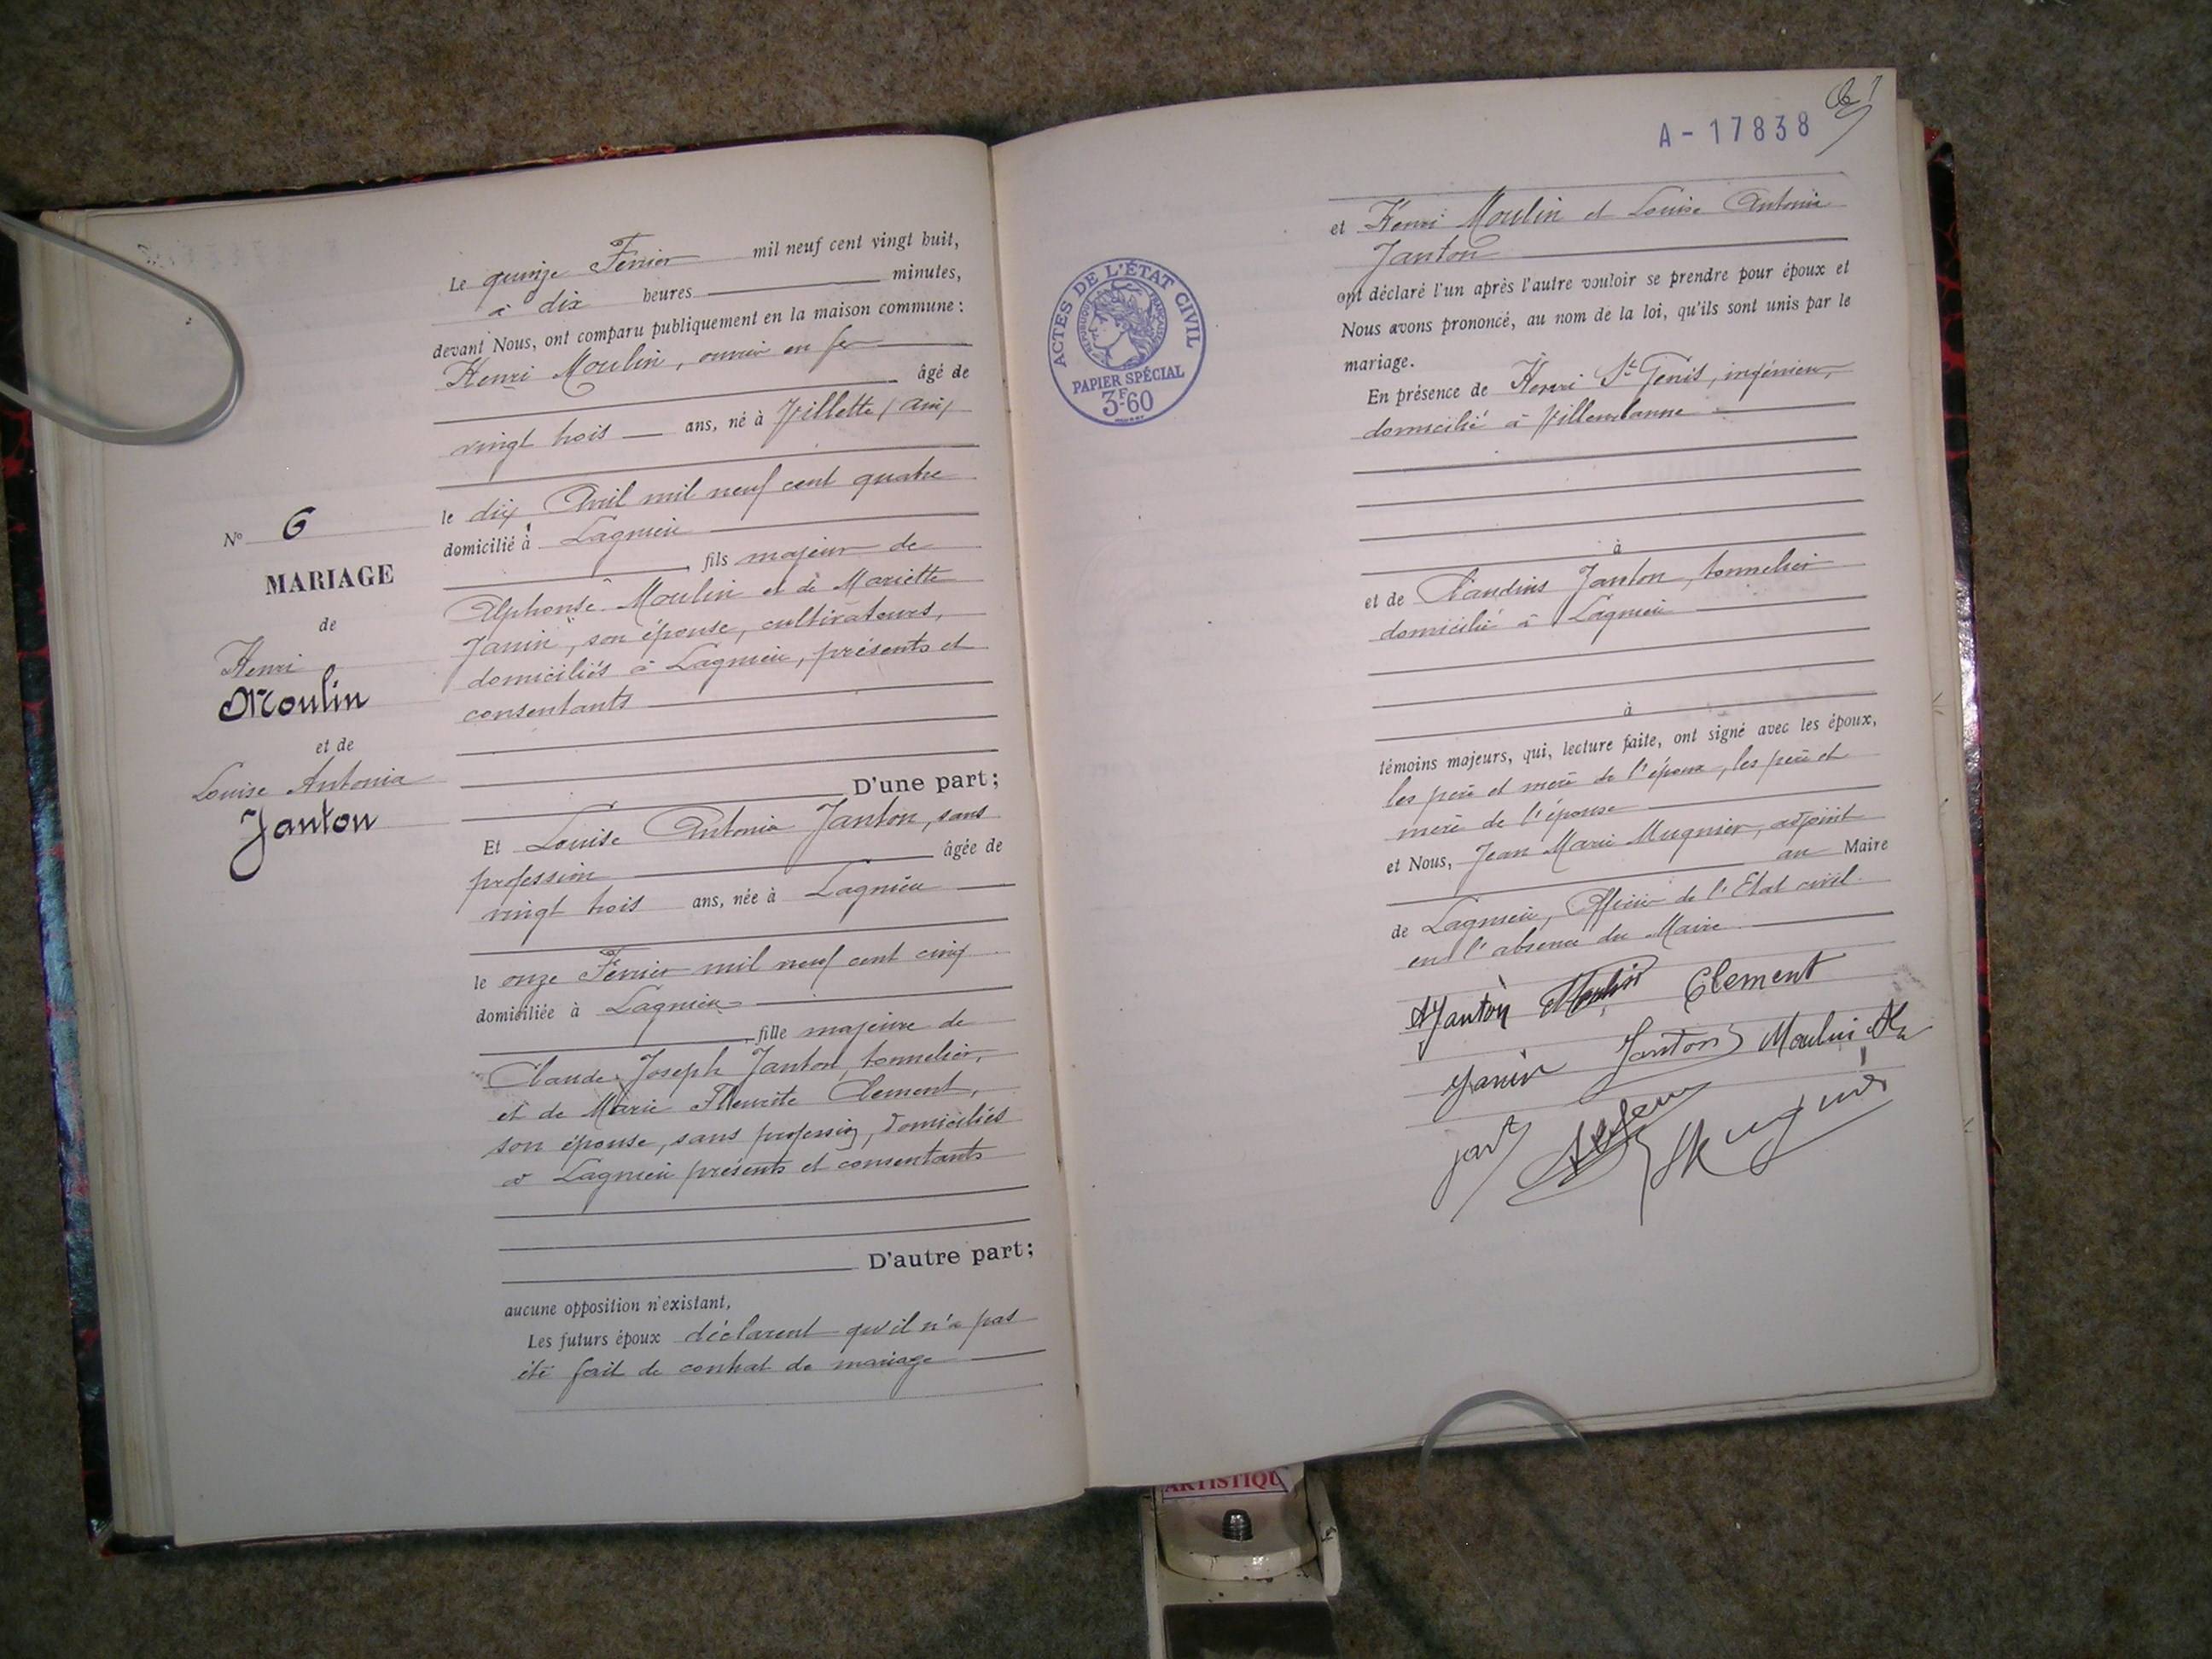 Le quinze Février mil neuf cent vingt huit,
à dix heures minutes,
devant Nous, ont comparu publiquement en la maison commune :
Henri Moulin, ouvrier en fer
âgé de
vingt trois ans, né à Villette (Ain)
le dix Avril mil neuf cent quatre
domicilié à Lagnieu
, fils majeur de
Alphonse Moulin et de Mariette
Janin, son épouse, cultivateurs,
domiciliés à Lagnieu, présents et
consentants
D'une part ;
Et Louise Antonia Janton, sans
profession âgée de
vingt trois ans, née à Lagnieu
le onze Février mil neuf cent cinq
domiciliée à Lagnieu
, fille majeure de
Claude Joseph Janton, tonnelier,
et de Marie Fleurite Clement,
son épouse, sans profession, domiciliés
à Lagnieu présents et consentants
D'autre part ;
aucune opposition n'existant,
Les futurs époux déclarent qu'il n'a pas
été fait de contrat de mariage
N° 6
MARIAGE
de
Henri
Moulin
et de
Louise Antonia
Janton
A - 17838
et Henri Moulin et Louise Antonia
Janton
ont déclaré l'un après l'autre vouloir se prendre pour époux et
Nous avons prononcé, au nom de la loi, qu'ils sont unis par le
mariage.
En présence de Henri St Genis, ingénieur,
domicilié à Villeurbanne
à
et de Claudius Janton, tonnelier
domicilié à Lagnieu
à
témoins majeurs, qui, lecture faite, ont signé avec les époux,
les père et mère de l'époux, les père et
mère de l'épouse
et Nous, Jean Marie Mugnier, adjoint
au Maire
de Lagnieu, Officier de l'Etat civil
en l'absence du Maire
AJanton Moulin Clement
Janin Janton Moulin
Mugnier
ACTES DE L'ÉTAT CIVIL
RÉPUBLIQUE FRANÇAISE
PAPIER SPÉCIAL
3F60
ARTISTIQU